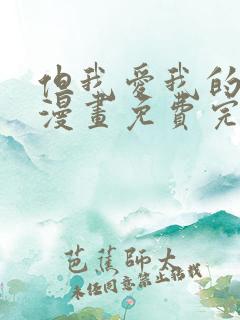 但我愛我的
漫畫免費完
芭蕉師太
未经同意禁止转载